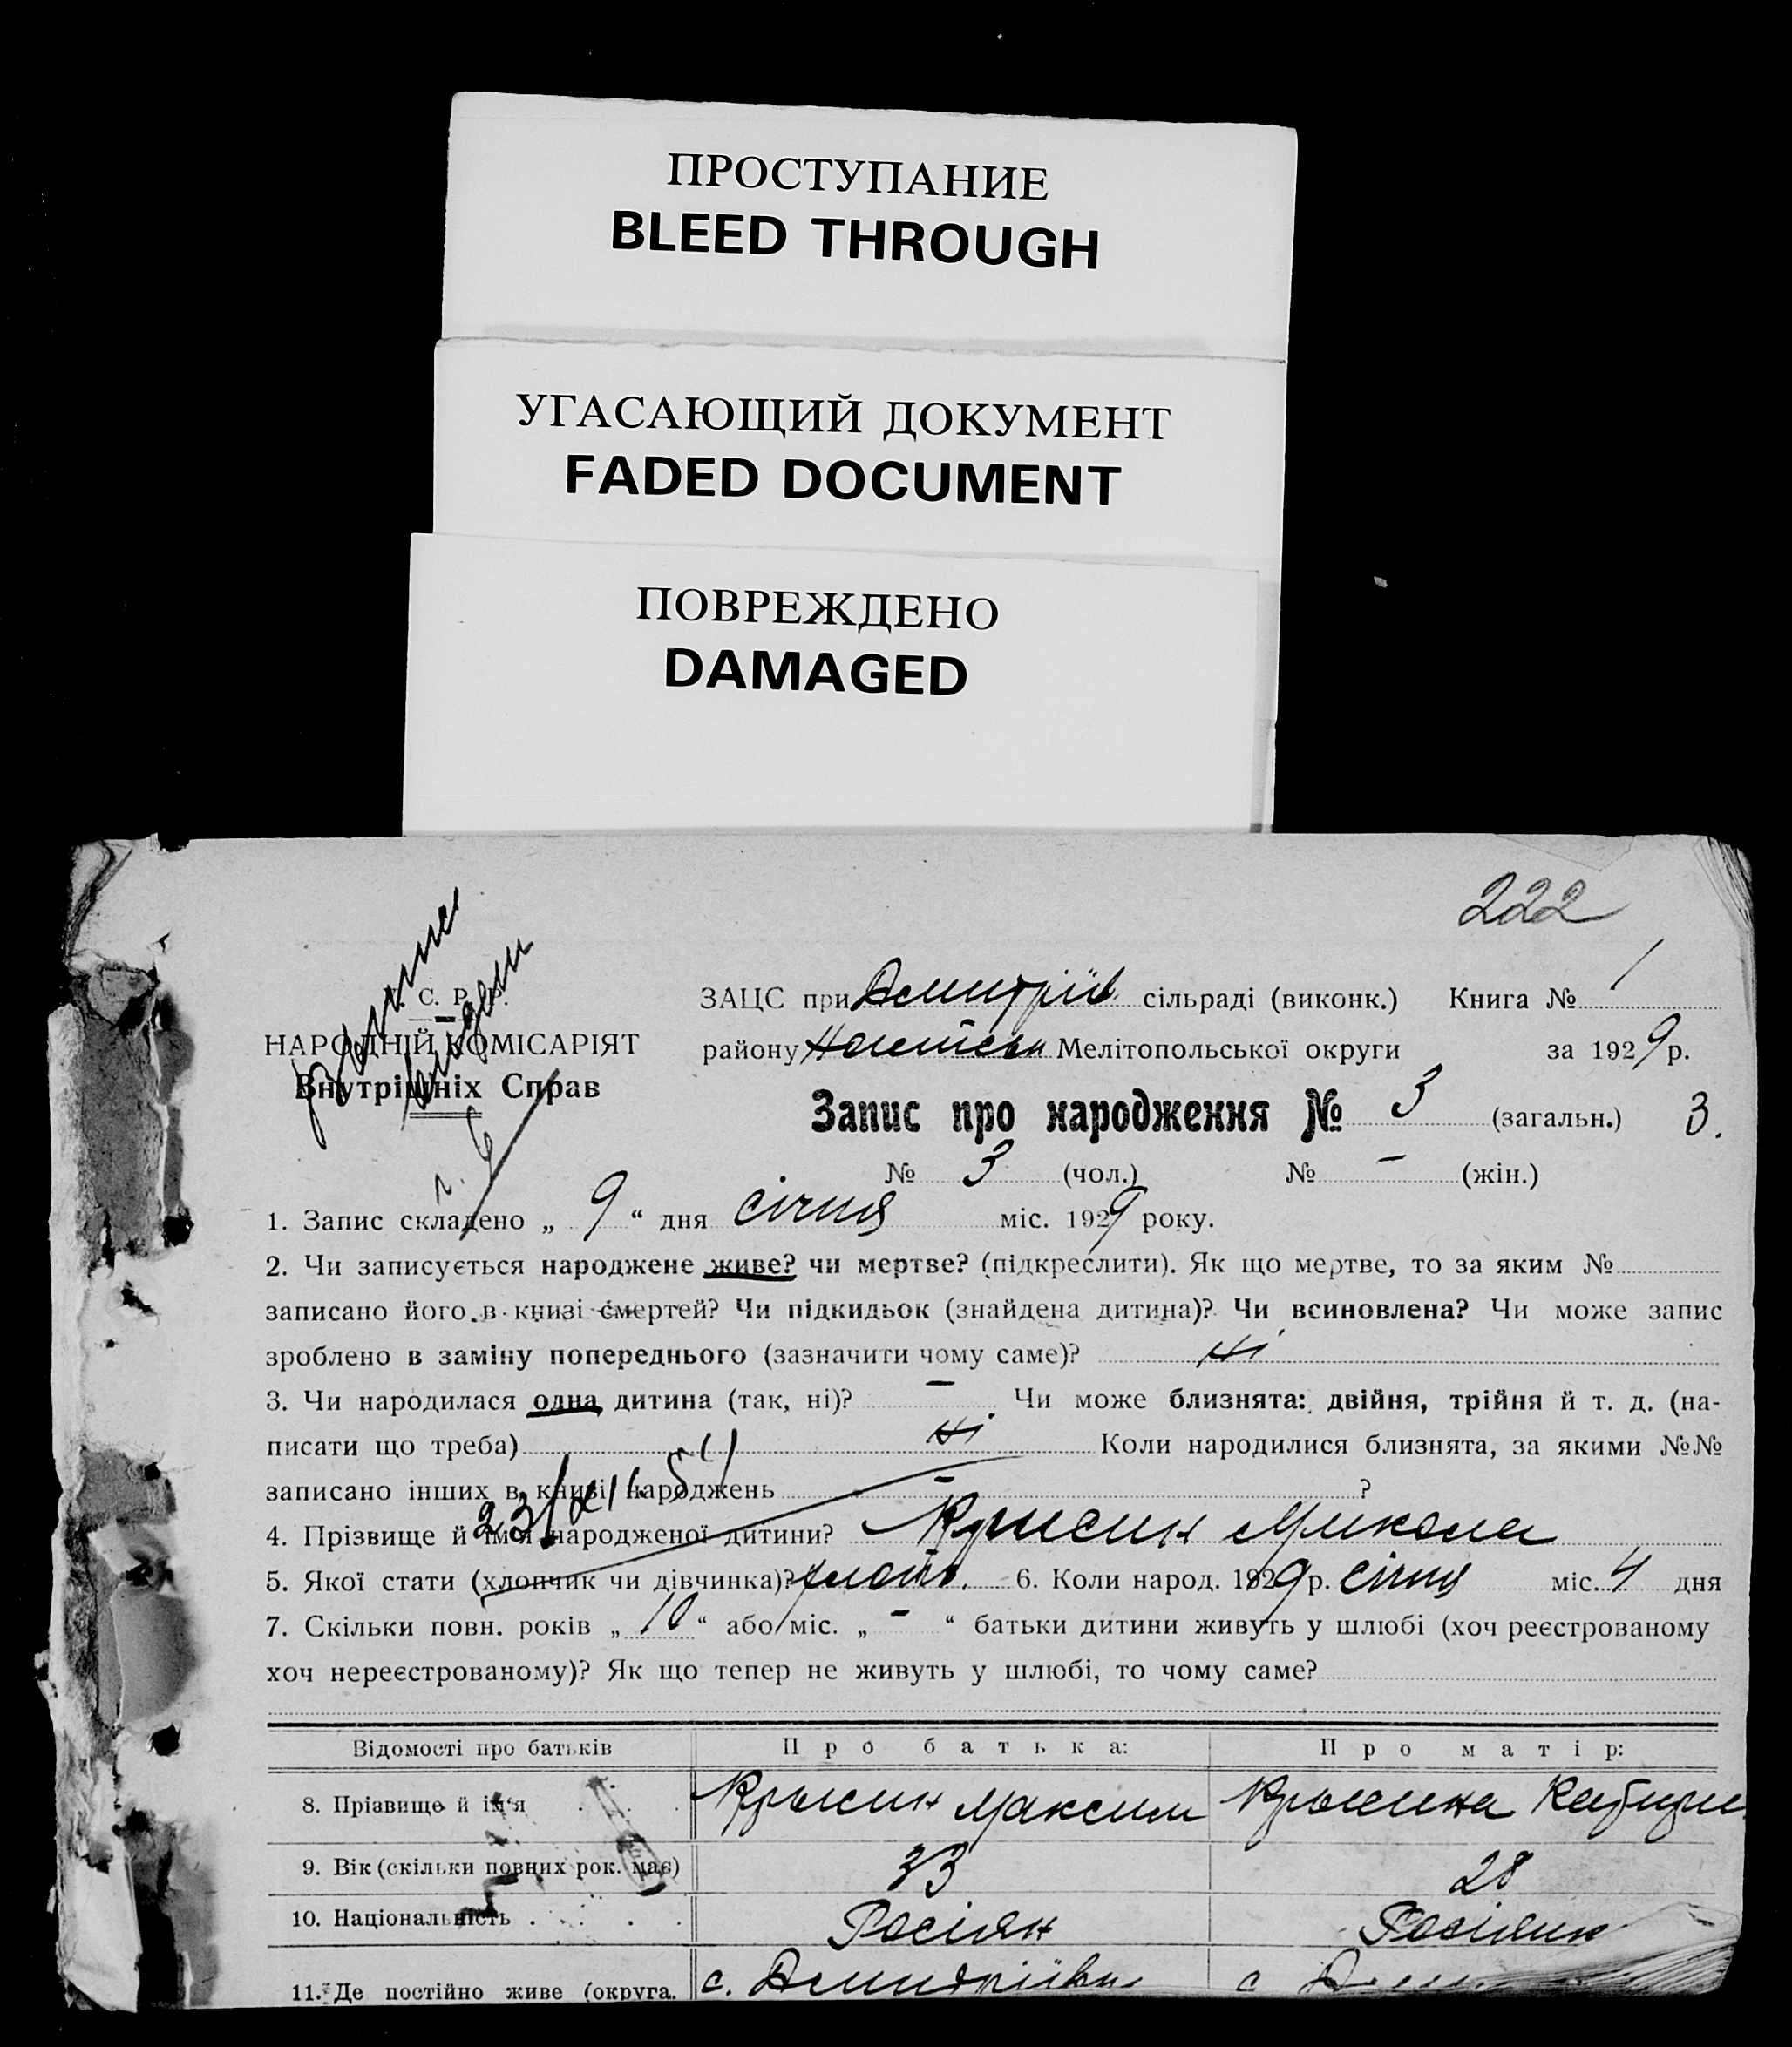 ПРОСТУПАНИЕ
BLEED THROUGH
УГАСАЮЩИЙ ДОКУМЕНТ
FADED DOCUMENT
ПОВРЕЖДЕНО
DAMAGED
222
С. Р.
НАРОДНІЙ КОМІСАРІЯТ
Внутрішніх Справ
ЗАЦС при Дмитрів. сільраді (виконк.) Книга № 1
району Мелітопольської округи за 1929 р.
Запис про народження № 3 (загальн.) 3.
№ 3 (чол.) № – (жін.)
1. Запис складено „ 9 “ дня січня міс. 1929 року.
2. Чи записується народжене живе? чи мертве? (підкреслити). Як що мертве, то за яким №
записано його в книзі смертей? Чи підкидьок (знайдена дитина)? Чи всиновлена? Чи може запис
зроблено в заміну попереднього (зазначити чому саме)? ні
3. Чи народилася одна дитина (так, ні)? – Чи може близнята: двійня, трійня й т. д. (на-
писати що треба) ні Коли народилися близнята, за якими №№
записано інших в книзі народжень – ?
4. Прізвище й ім'я народженої дитини? Крысин Микола
5. Якої статі (хлопчик чи дівчинка)? 6. Коли народ. 1929 р. січня міс. 4 дня
7. Скільки повн. років „ 10 “ або міс. „ – “ батьки дитини живуть у шлюбі (хоч реєстрованому
хоч нереєстрованому)? Як що тепер не живуть у шлюбі, то чому саме?
Відомості про батьків Про батька: Про матір:
8. Прізвище й ім'я Крысин Максим Крысина
9. Вік (скільки повних рок. має) 33 28
10. Національність Росіян
11. Де постійно живе (округа. с. Дмитрівка с